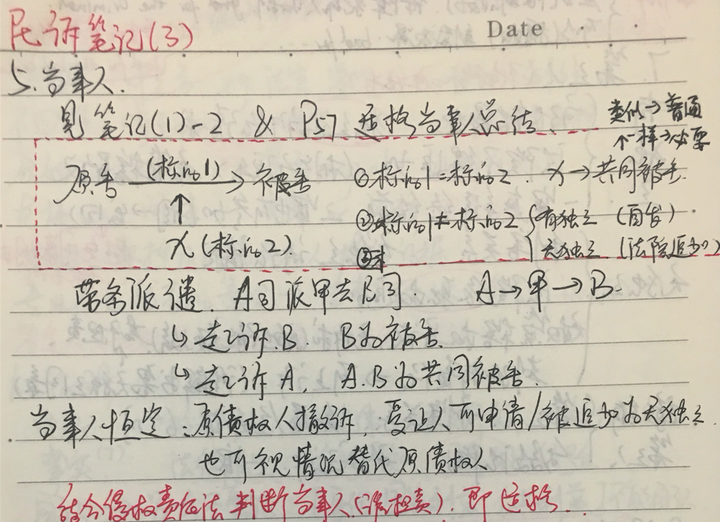 民诉笔记(3)
Date
5.当事人.
见笔记(1)-2 & P57 适格当事人总结.
类似→普通
↑一样→必要
原告 (标的1)→ 被告
①标的1=标的2. x→共同被告.
↑
②标的1≠标的2 { 有独立 (自告)
x (标的2)
无独立 (法院追加)
③
劳务派遣. A司派甲去B司. A→甲→B.
↳ 诉B. B为被告.
↳ 诉A, A.B为共同被告.
当事人恒定:原债权人撤诉,受让人可申请/被追加为无独三.
也可视情况替代原债权人
结合侵权责任法判断当事人(谁担责),即适格.